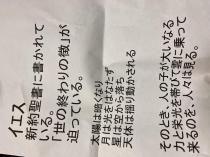 イエス
新約聖書に書かれて
いる。
「世の終わりの徴」が
迫っている。
太陽は暗くなり
月は光をはなたず
星は空から落ち
天体は揺り動かされる
そのとき、人の子が大いなる
力と栄光を帯びて雲に乗って
来るのを、人々は見る。